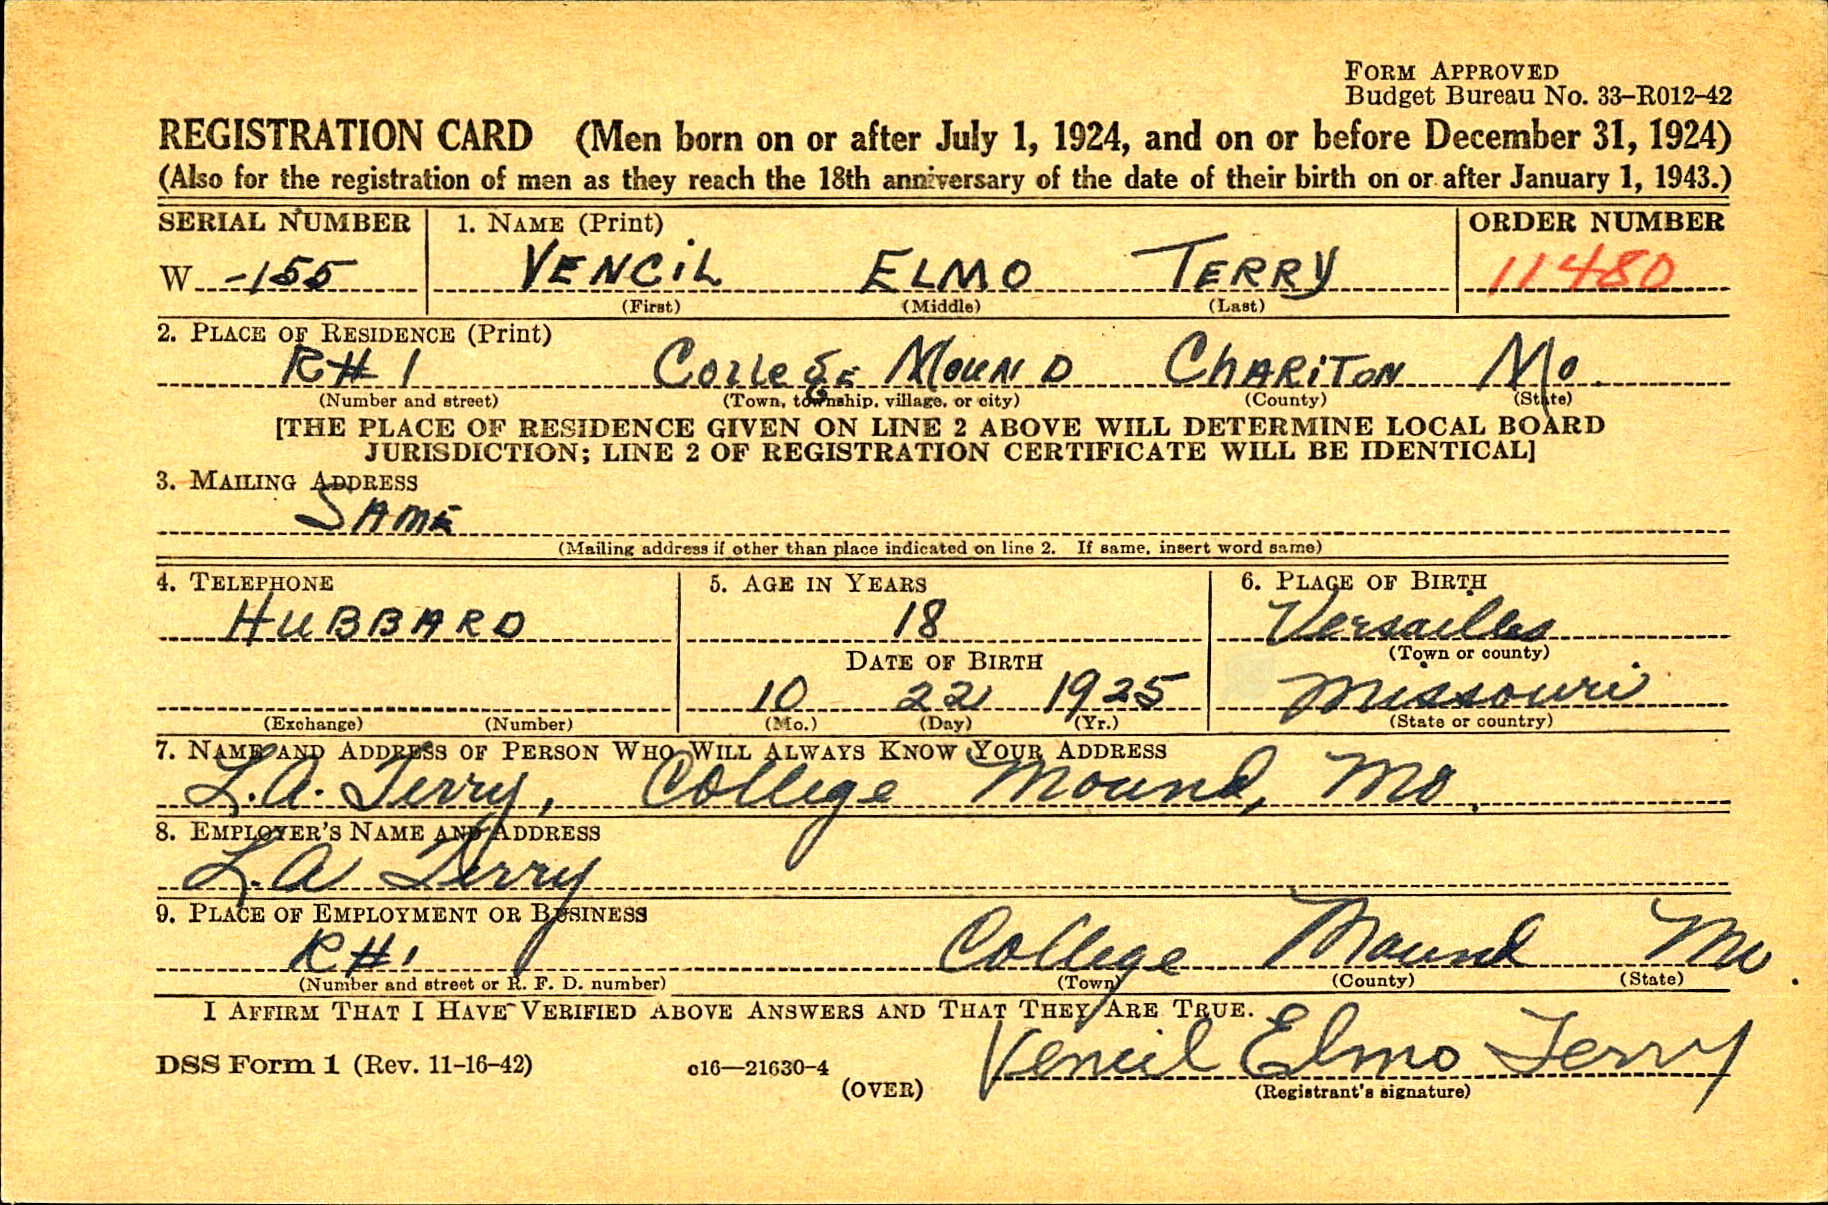 FORM APPROVED
Budget Bureau No. 33–R012–42
REGISTRATION CARD (Men born on or after July 1, 1924, and on or before December 31, 1924)
(Also for the registration of men as they reach the 18th anniversary of the date of their birth on or after January 1, 1943.)
SERIAL NUMBER 1. NAME (Print) ORDER NUMBER
W -155 VENCIL ELMO TERRY 11480
(First) (Middle) (Last)
2. PLACE OF RESIDENCE (Print)
R#1 COLLEGE MOUND CHARITON Mo.
(Number and street) (Town, township, village, or city) (County) (State)
[THE PLACE OF RESIDENCE GIVEN ON LINE 2 ABOVE WILL DETERMINE LOCAL BOARD
JURISDICTION; LINE 2 OF REGISTRATION CERTIFICATE WILL BE IDENTICAL]
3. MAILING ADDRESS
SAME
(Mailing address if other than place indicated on line 2. If same, insert word same)
4. TELEPHONE 5. AGE IN YEARS 6. PLACE OF BIRTH
HUBBARD 18 Versailles
DATE OF BIRTH (Town or county)
10 22 1925 Missouri
(Exchange) (Number) (Mo.) (Day) (Yr.) (State or country)
7. NAME AND ADDRESS OF PERSON WHO WILL ALWAYS KNOW YOUR ADDRESS
L.A. Terry, College Mound, Mo.
8. EMPLOYER'S NAME AND ADDRESS
L.A Terry
9. PLACE OF EMPLOYMENT OR BUSINESS
R#1 College Mound Mo.
(Number and street or R. F. D. number) (Town) (County) (State)
I AFFIRM THAT I HAVE VERIFIED ABOVE ANSWERS AND THAT THEY ARE TRUE.
DSS Form 1 (Rev. 11–16–42) c16—21630-4 Vencil Elmo Terry
(OVER) (Registrant's signature)